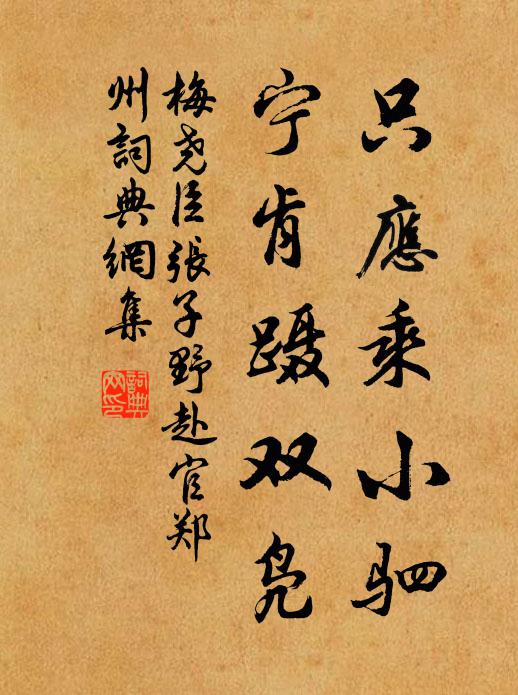 只應乘小驷
宁肯蹑双凫
梅尧臣張子野赴官郑
州詞典網集
詞典网印